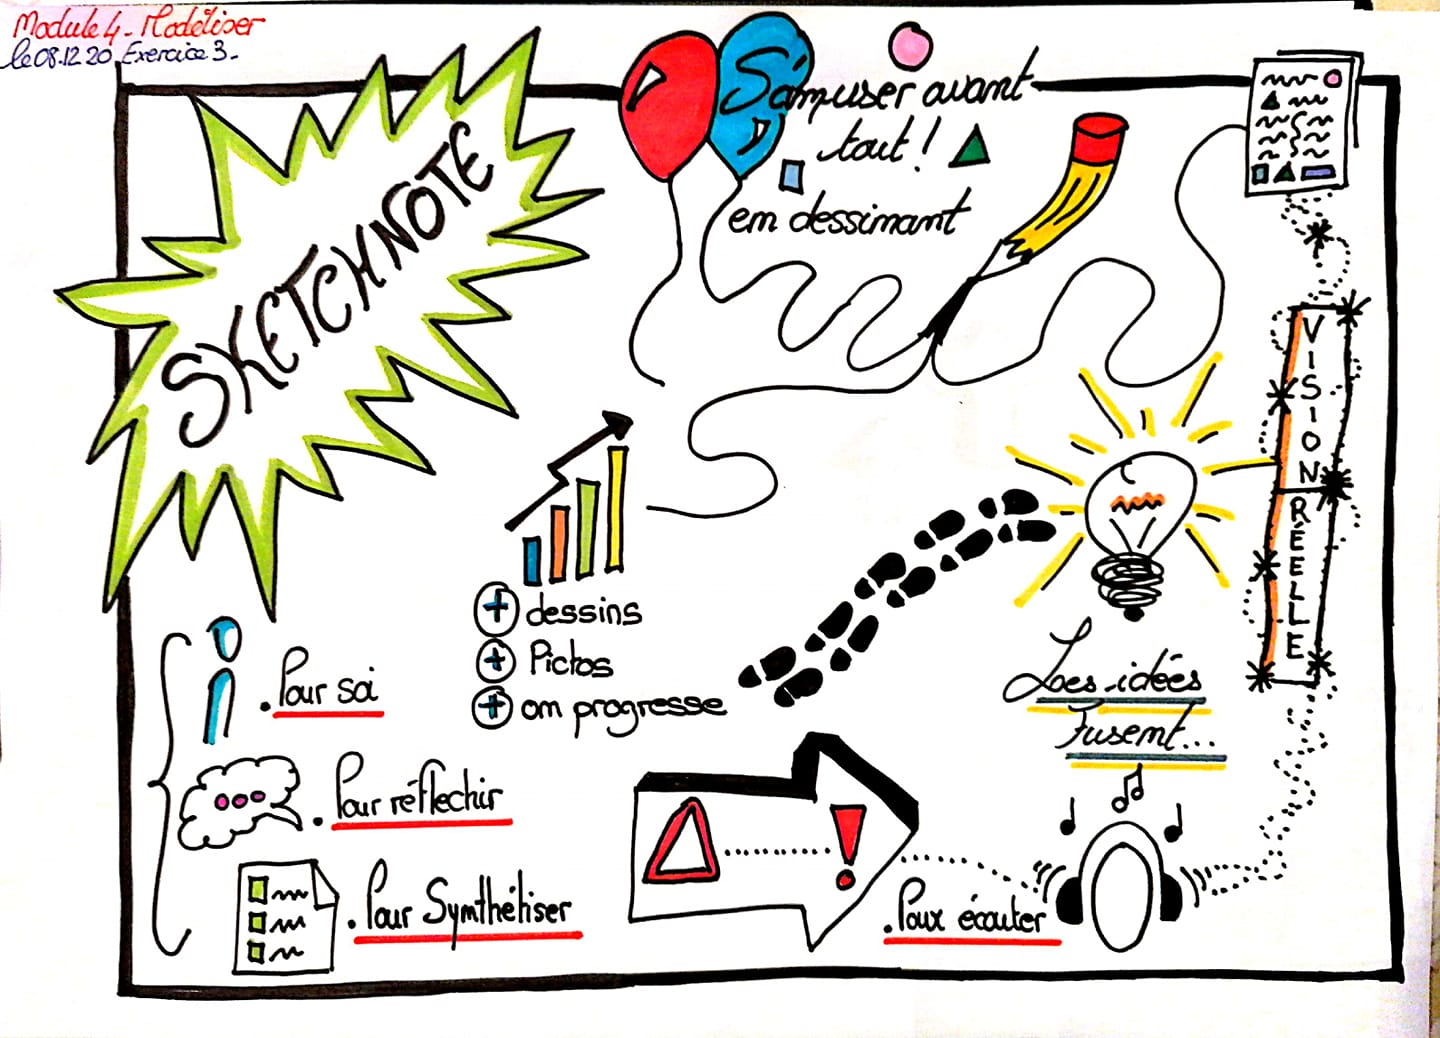 Module 4 - Modéliser
le 08.12 20 Exercice 3.
SKETCHNOTE
S'amuser avant
tout !
en dessinant
VISION RÉELLE
+ dessins
+ Pictos
+ on progresse
Les idées
fusent...
. Pour soi
. Pour réflechir
. Pour Synthétiser
. Pour écouter